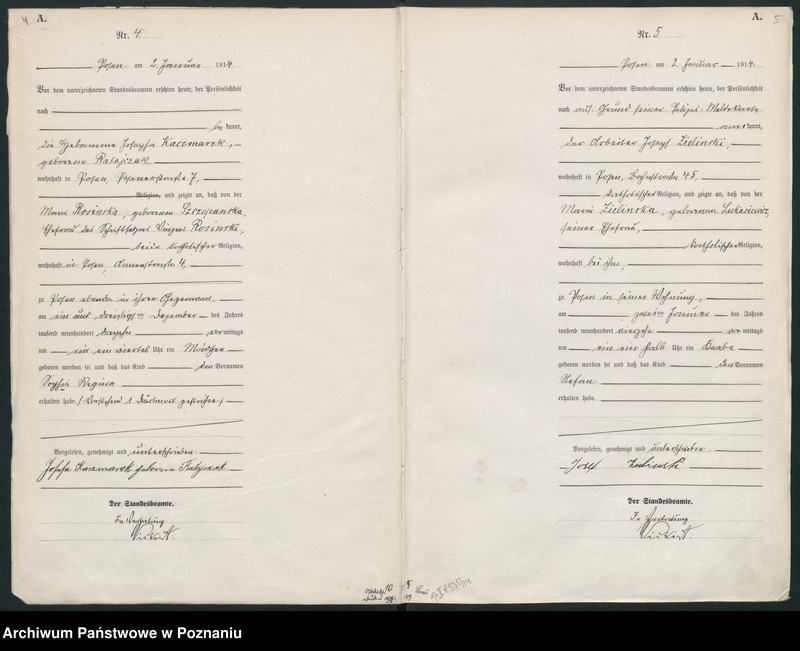 4
A.
Nr. 4
Posen am 2. Januar 1914
Vor dem unterzeichneten Standesbeamten erschien heute, der Persönlichkeit
nach
be kannt,
die Hebamme Josepha Kaczmarek,
geborene Ratajczak
wohnhaft in Posen, Posenerstraße 7,
Religion, und zeigte an, daß von der
Maria Rosinska, geborenen Szczepanska,
Ehefrau des Schriftsetzers Rosinski,
beide katholischer Religion,
wohnhaft in Posen, 4,
zu Posen ebenda in ihrer Gegenwart
am ein und dreißigsten Dezember des Jahres
tausend neunhundert dreizehn vormittags
um ein ein viertel Uhr ein Mädchen
geboren worden sei und daß das Kind den Vornamen
Sophia Regina
erhalten habe. (Vorstehend 1 Druckwort gestrichen.)
Vorgelesen, genehmigt und unterschrieben
Josefa Kaczmarek geborene Ratajczak
Der Standesbeamte.
In Vertretung
A.
5
Nr. 5
Posen am 2 Januar 1914
Vor dem unterzeichneten Standesbeamten erschien heute, der Persönlichkeit
nach auf Grund seiner Polizei-Meldekarte
aner kannt,
der Arbeiter Josef Zielinski,
wohnhaft in Posen, 45,
katholischer Religion, und zeigte an, daß von der
Maria Zielinska, geborenen Lukasiewicz,
seiner Ehefrau,
katholischer Religion,
wohnhaft bei ihm,
zu Posen in seiner Wohnung,
am zweiten Januar des Jahres
tausend neunhundert vierzehn vormittags
um ein ein halb Uhr ein Knabe
geboren worden sei und daß das Kind den Vornamen
Stefan
erhalten habe.
Vorgelesen, genehmigt und unterschrieben
Josef Zielinski
Der Standesbeamte.
In Vertretung
Archiwum Państwowe w Poznaniu